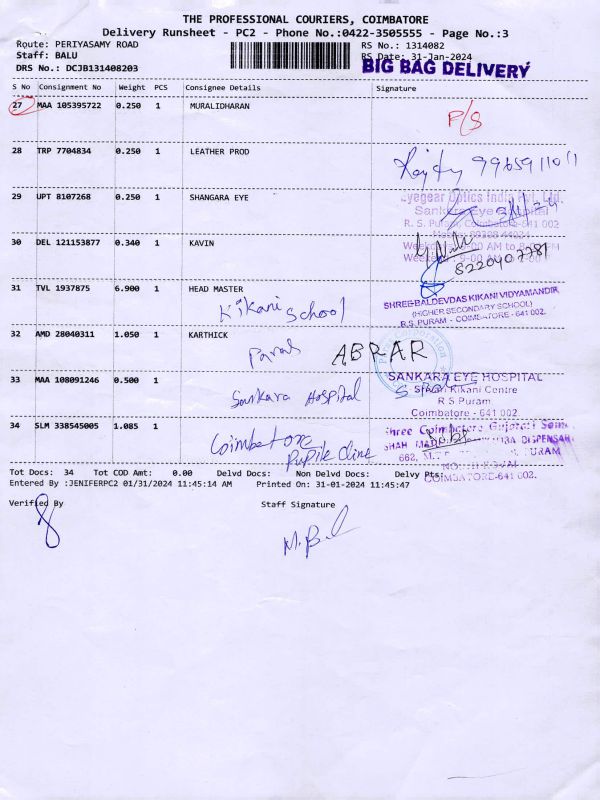 THE PROFESSIONAL COURIERS, COIMBATORE
Delivery Runsheet - PC2 - Phone No.:0422-3505555 - Page No.:3
Route: PERIYASAMY ROAD RS No.: 1314082
Staff: BALU RS Date: 31-Jan-2024
DRS No.: DCJB131408203 BIG BAG DELIVERY
S No Consignment No Weight PCS Consignee Details Signature
27 MAA 105395722 0.250 1 MURALIDHARAN P/S
28 TRP 7704834 0.250 1 LEATHER PROD
29 UPT 8107268 0.250 1 SHANGARA EYE
Eyegear Optics India Pvt. Ltd.
Sankara Eye Hospital
R. S. Puram, Coimbatore-641 002
30 DEL 121153877 0.340 1 KAVIN
8220407781
31 TVL 1937875 6.900 1 HEAD MASTER
Kikani School
SHREE BALDEVDAS KIKANI VIDYAMANDIR
(HIGHER SECONDARY SCHOOL)
R.S. PURAM - COIMBATORE - 641 002.
32 AMD 28040311 1.050 1 KARTHICK
ABRAR
33 MAA 108091246 0.500 1
Sankara Hospital
SANKARA EYE HOSPITAL
Kikani Centre
R.S.Puram
Coimbatore - 641 002
34 SLM 338545005 1.085 1
Coimbatore
Shree Coimbatore Gujarati
COIMBATORE-641 002.
Tot Docs: 34 Tot COD Amt: 0.00 Delvd Docs: Non Delvd Docs: Delvy Pts:
Entered By :JENIFERPC2 01/31/2024 11:45:14 AM Printed On: 31-01-2024 11:45:47
Verified By Staff Signature